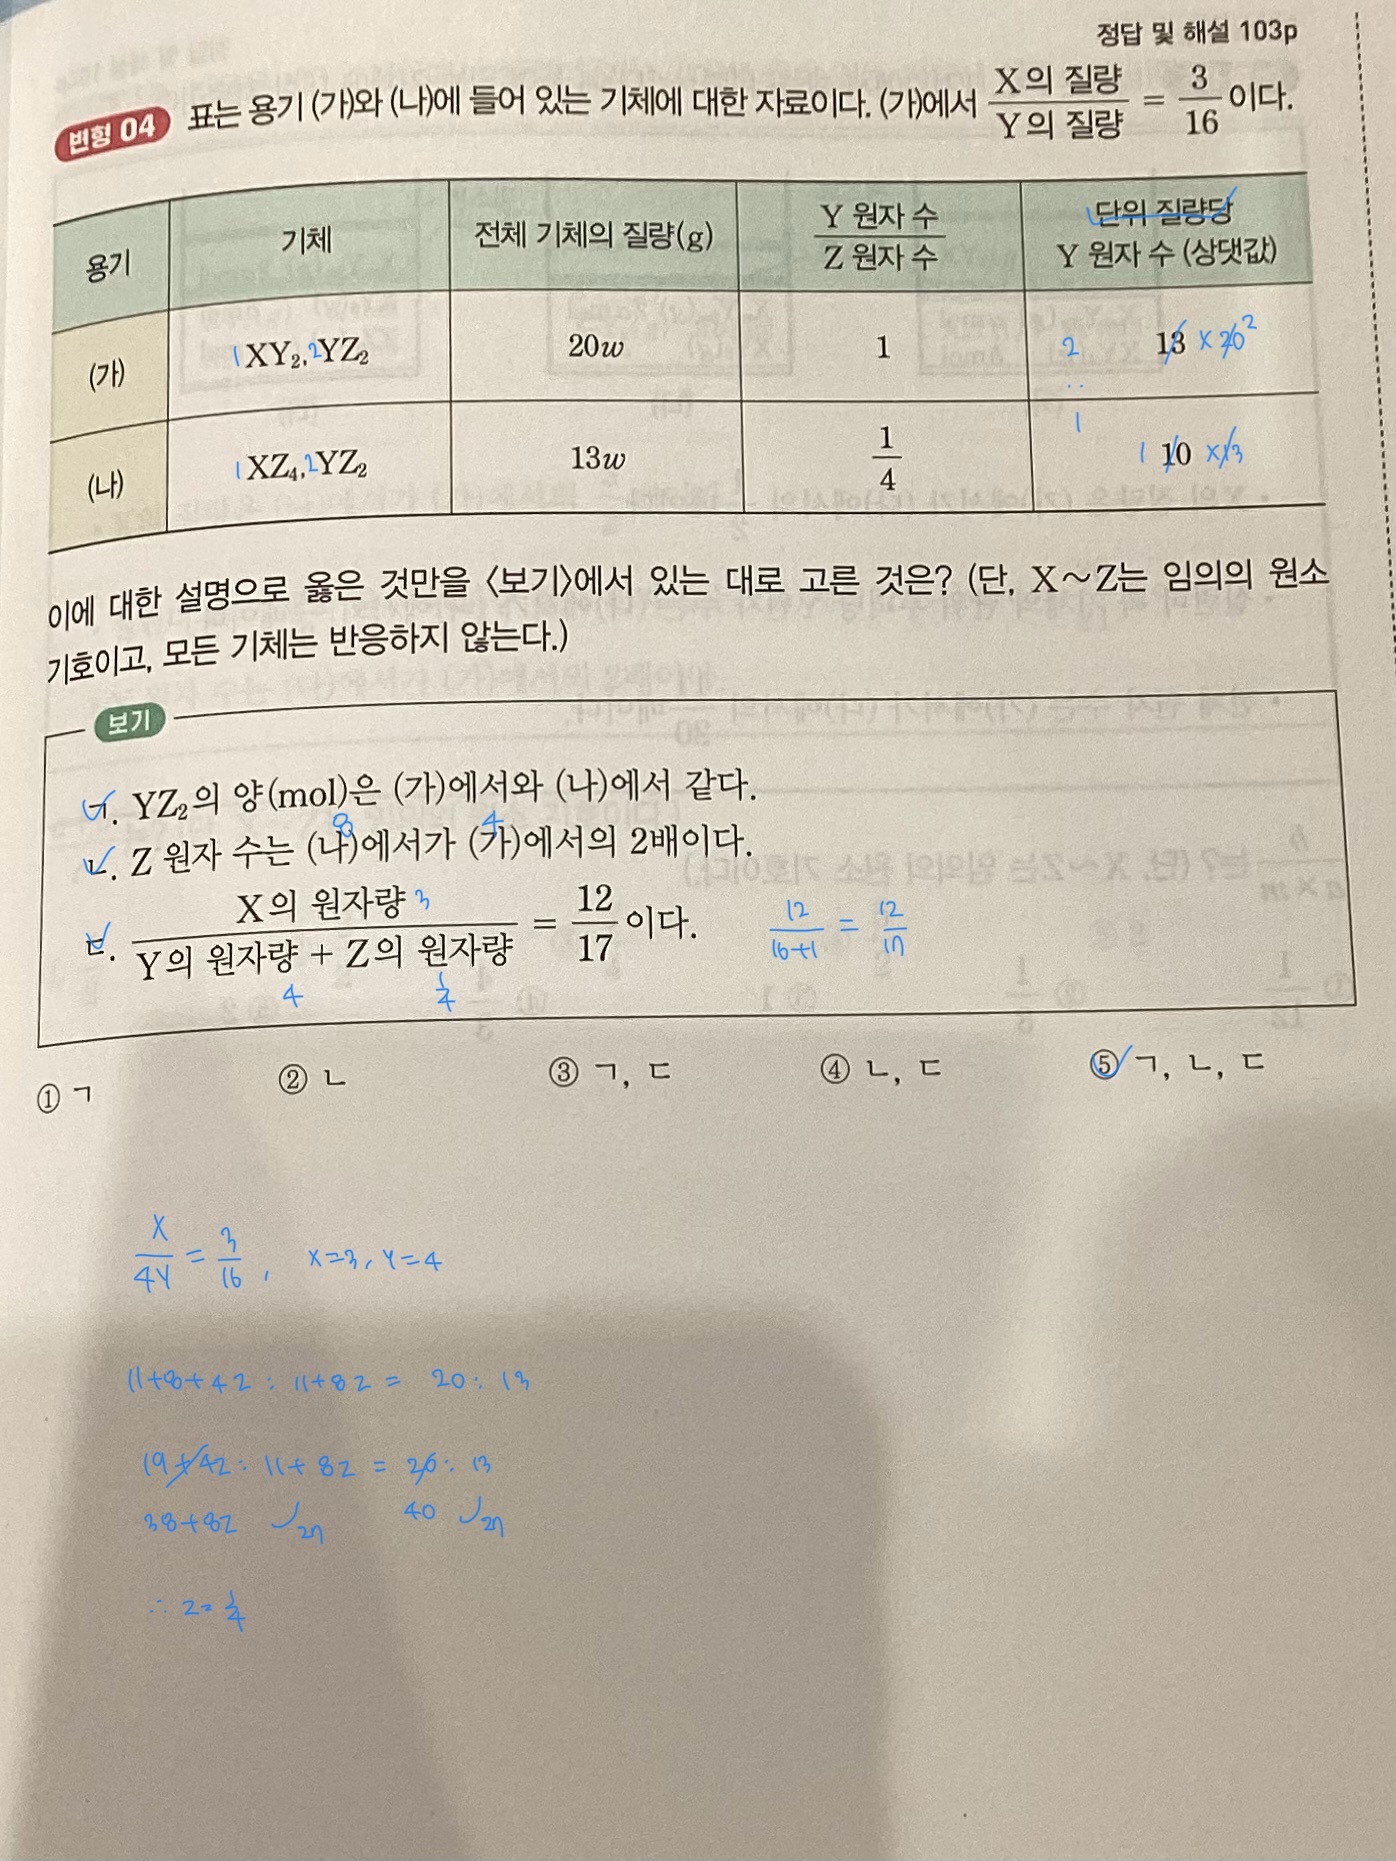 정답 및 해설 103p
변형 04 표는 용기 (가)와 (나)에 들어 있는 기체에 대한 자료이다. (가)에서 X의 질량/Y의 질량 = 3/16이다.
용기 기체 전체 기체의 질량(g) Y 원자 수/Z 원자 수 단위 질량당 Y 원자 수 (상댓값)
(가) 1XY₂, 2YZ₂ 20w 1 2 13 × 20 2
:
1
(나) 1XZ₄, 2YZ₂ 13w 1/4 1 10 × 13
이에 대한 설명으로 옳은 것만을 〈보기〉에서 있는 대로 고른 것은? (단, X～Z는 임의의 원소
기호이고, 모든 기체는 반응하지 않는다.)
보기
ㄱ. YZ₂의 양(mol)은 (가)에서와 (나)에서 같다.
8 4
ㄴ. Z 원자 수는 (나)에서가 (가)에서의 2배이다.
ㄷ. X의 원자량/Y의 원자량 + Z의 원자량 = 12/17이다.
3 4 1/4
12/16+1 = 12/17
① ㄱ ② ㄴ ③ ㄱ, ㄷ ④ ㄴ, ㄷ ⑤ ㄱ, ㄴ, ㄷ
X/4Y = 3/16, X=3, Y=4
11+8+4Z : 11+8Z = 20 : 13
19+4Z : 11+8Z = 20 : 13
38+8Z 27 40 27
∴ Z = 1/4